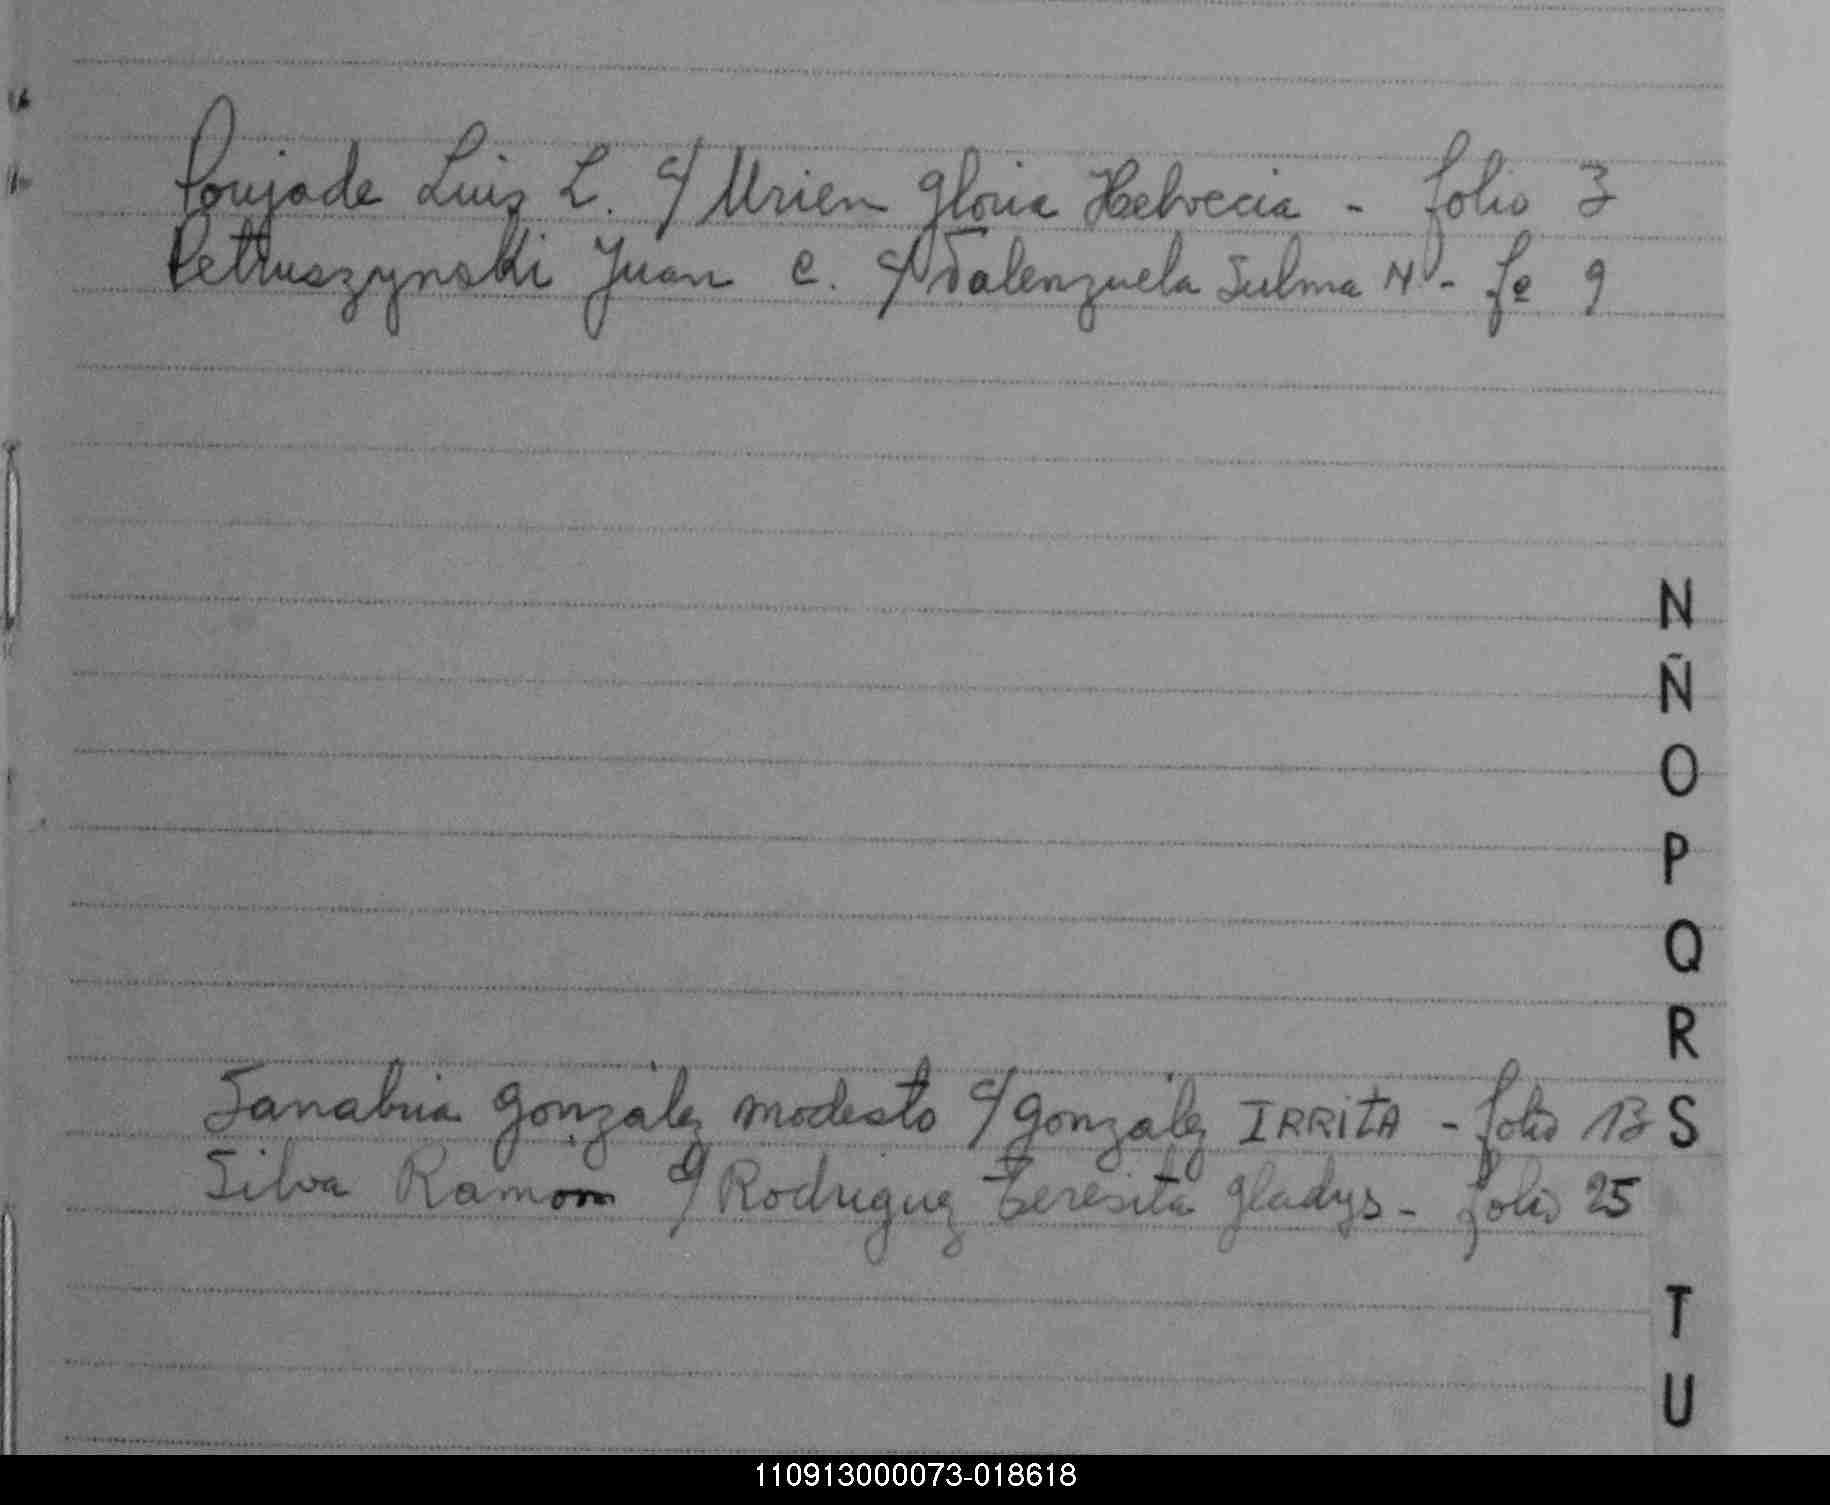 Poujade Luis L. c/ Urien Gloria Helvecia - folio 3
Petruszynski Juan C. c/ Valenzuela Sulma N - fº 9
N
Ñ
O
P
Q
R
Sanabria González Modesto c/ González IRRITA - folio 13 S
Silva Ramon c/ Rodriguez Teresita Gladys - folio 25
T
U
110913000073-018618